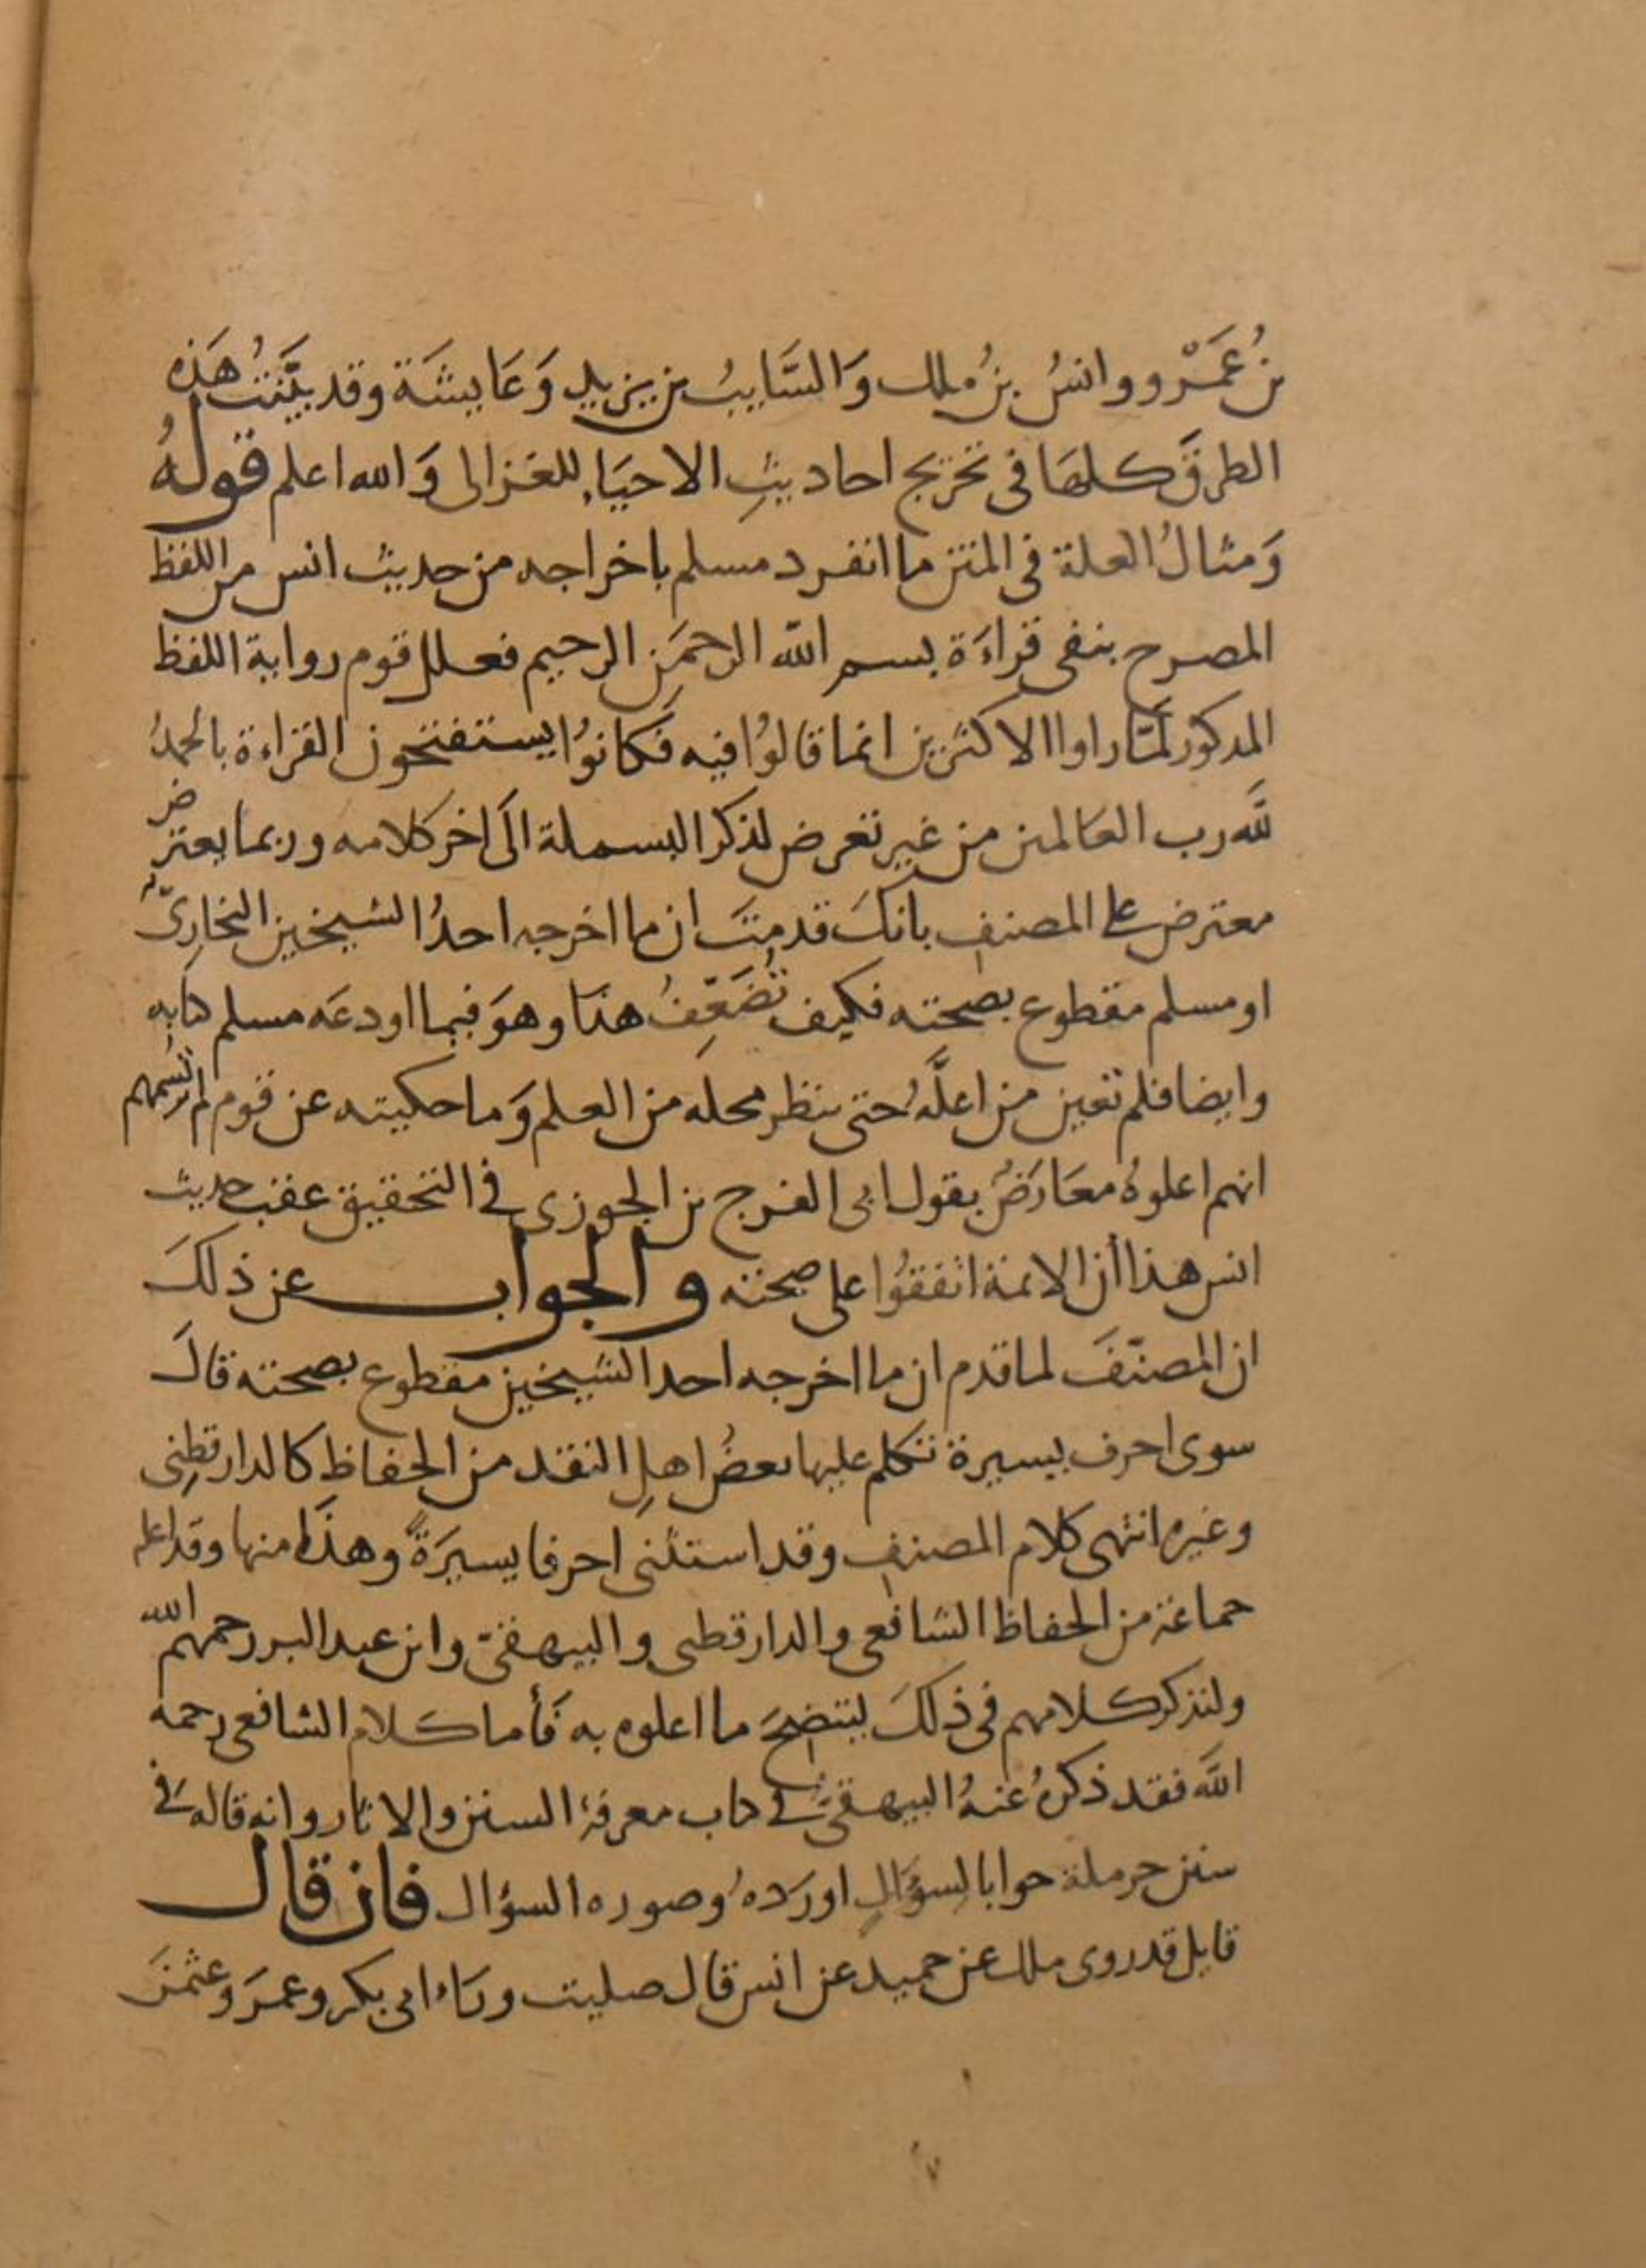 بنُ عَمْرو وانسُ بنُ ملك وَالسَّايبُ بن يزيد وَعَايشَة وقد بيَّنتُ هَذه
الطرقَ كلهَا فى تخريج احاديثِ الاحيَاءِ للغزالى وَالله اعلم قولهُ
وَمثالُ العلة فى المتن ما انفرد مسلم باخراجه من حديث انس من اللفظ
المصرح بنفى قراءَة بسم الله الرحمَن الرحيم فعلل قوم رواية اللفظ
المدكور لمَّا راوا الاكثرين انما قالوُا فيه فكانوُا يستفتحون القراءة بالحمدُ
للَّه رب العَالمين من غير تعرض لذكر البسملة الَى اخر كلامه وربما يعترض
معترض على المصنف بانكَ قدمتَ ان ما اخرجه احدُ الشيخين البخارِىّ
او مسلم مقطوع بصحته فكيف تُضَعِّفُ هذا وهوَ فيما اودعَه مسلم كتابه
وايضا فلم تعين من اعلَّهُ حتى ننظر محله من العلم وَما حكيته عن قوم لم تسمهم
انهم اعلوهُ معَارَضٌ بقول ابى الفرج بن الجوزى فى التحقيق عقب حديث
انس هذا أن الائمة اتفقوُا على صحته والجواب عن ذلكَ
ان المصنّفَ لما قدم ان ما اخرجه احد الشيخين مقطوع بصحته قالَ
سوى احرف يسيرة تكلم عليها بعضُ اهلِ النقد من الحفاظ كالدارقطِنى
وغيره انتهى كلام المصنف وقد استثنى احرفا يسيرَةً وهذَا منها وقد اعله
جماعة من الحفاظ الشافعى والدارقطنى والبيهقىّ وابن عبد البر رحمهم الله
ولنذكر كلامهم فى ذلكَ ليتضحَ ما اعلوه به فَأما كلام الشافعى رحمه
اللَّه فقد ذكرهُ عنهُ البيهقىّ فى كتاب معرفة السنن والاثار وانه قاله فى
سنن حرملة جوابا لسؤالٍ اورَدهُ وصوره السؤال فان قال
قايل قد روى ملك عن حميد عن انس قال صليت ورَاء ابى بكر وعمرَ وعثمنَ